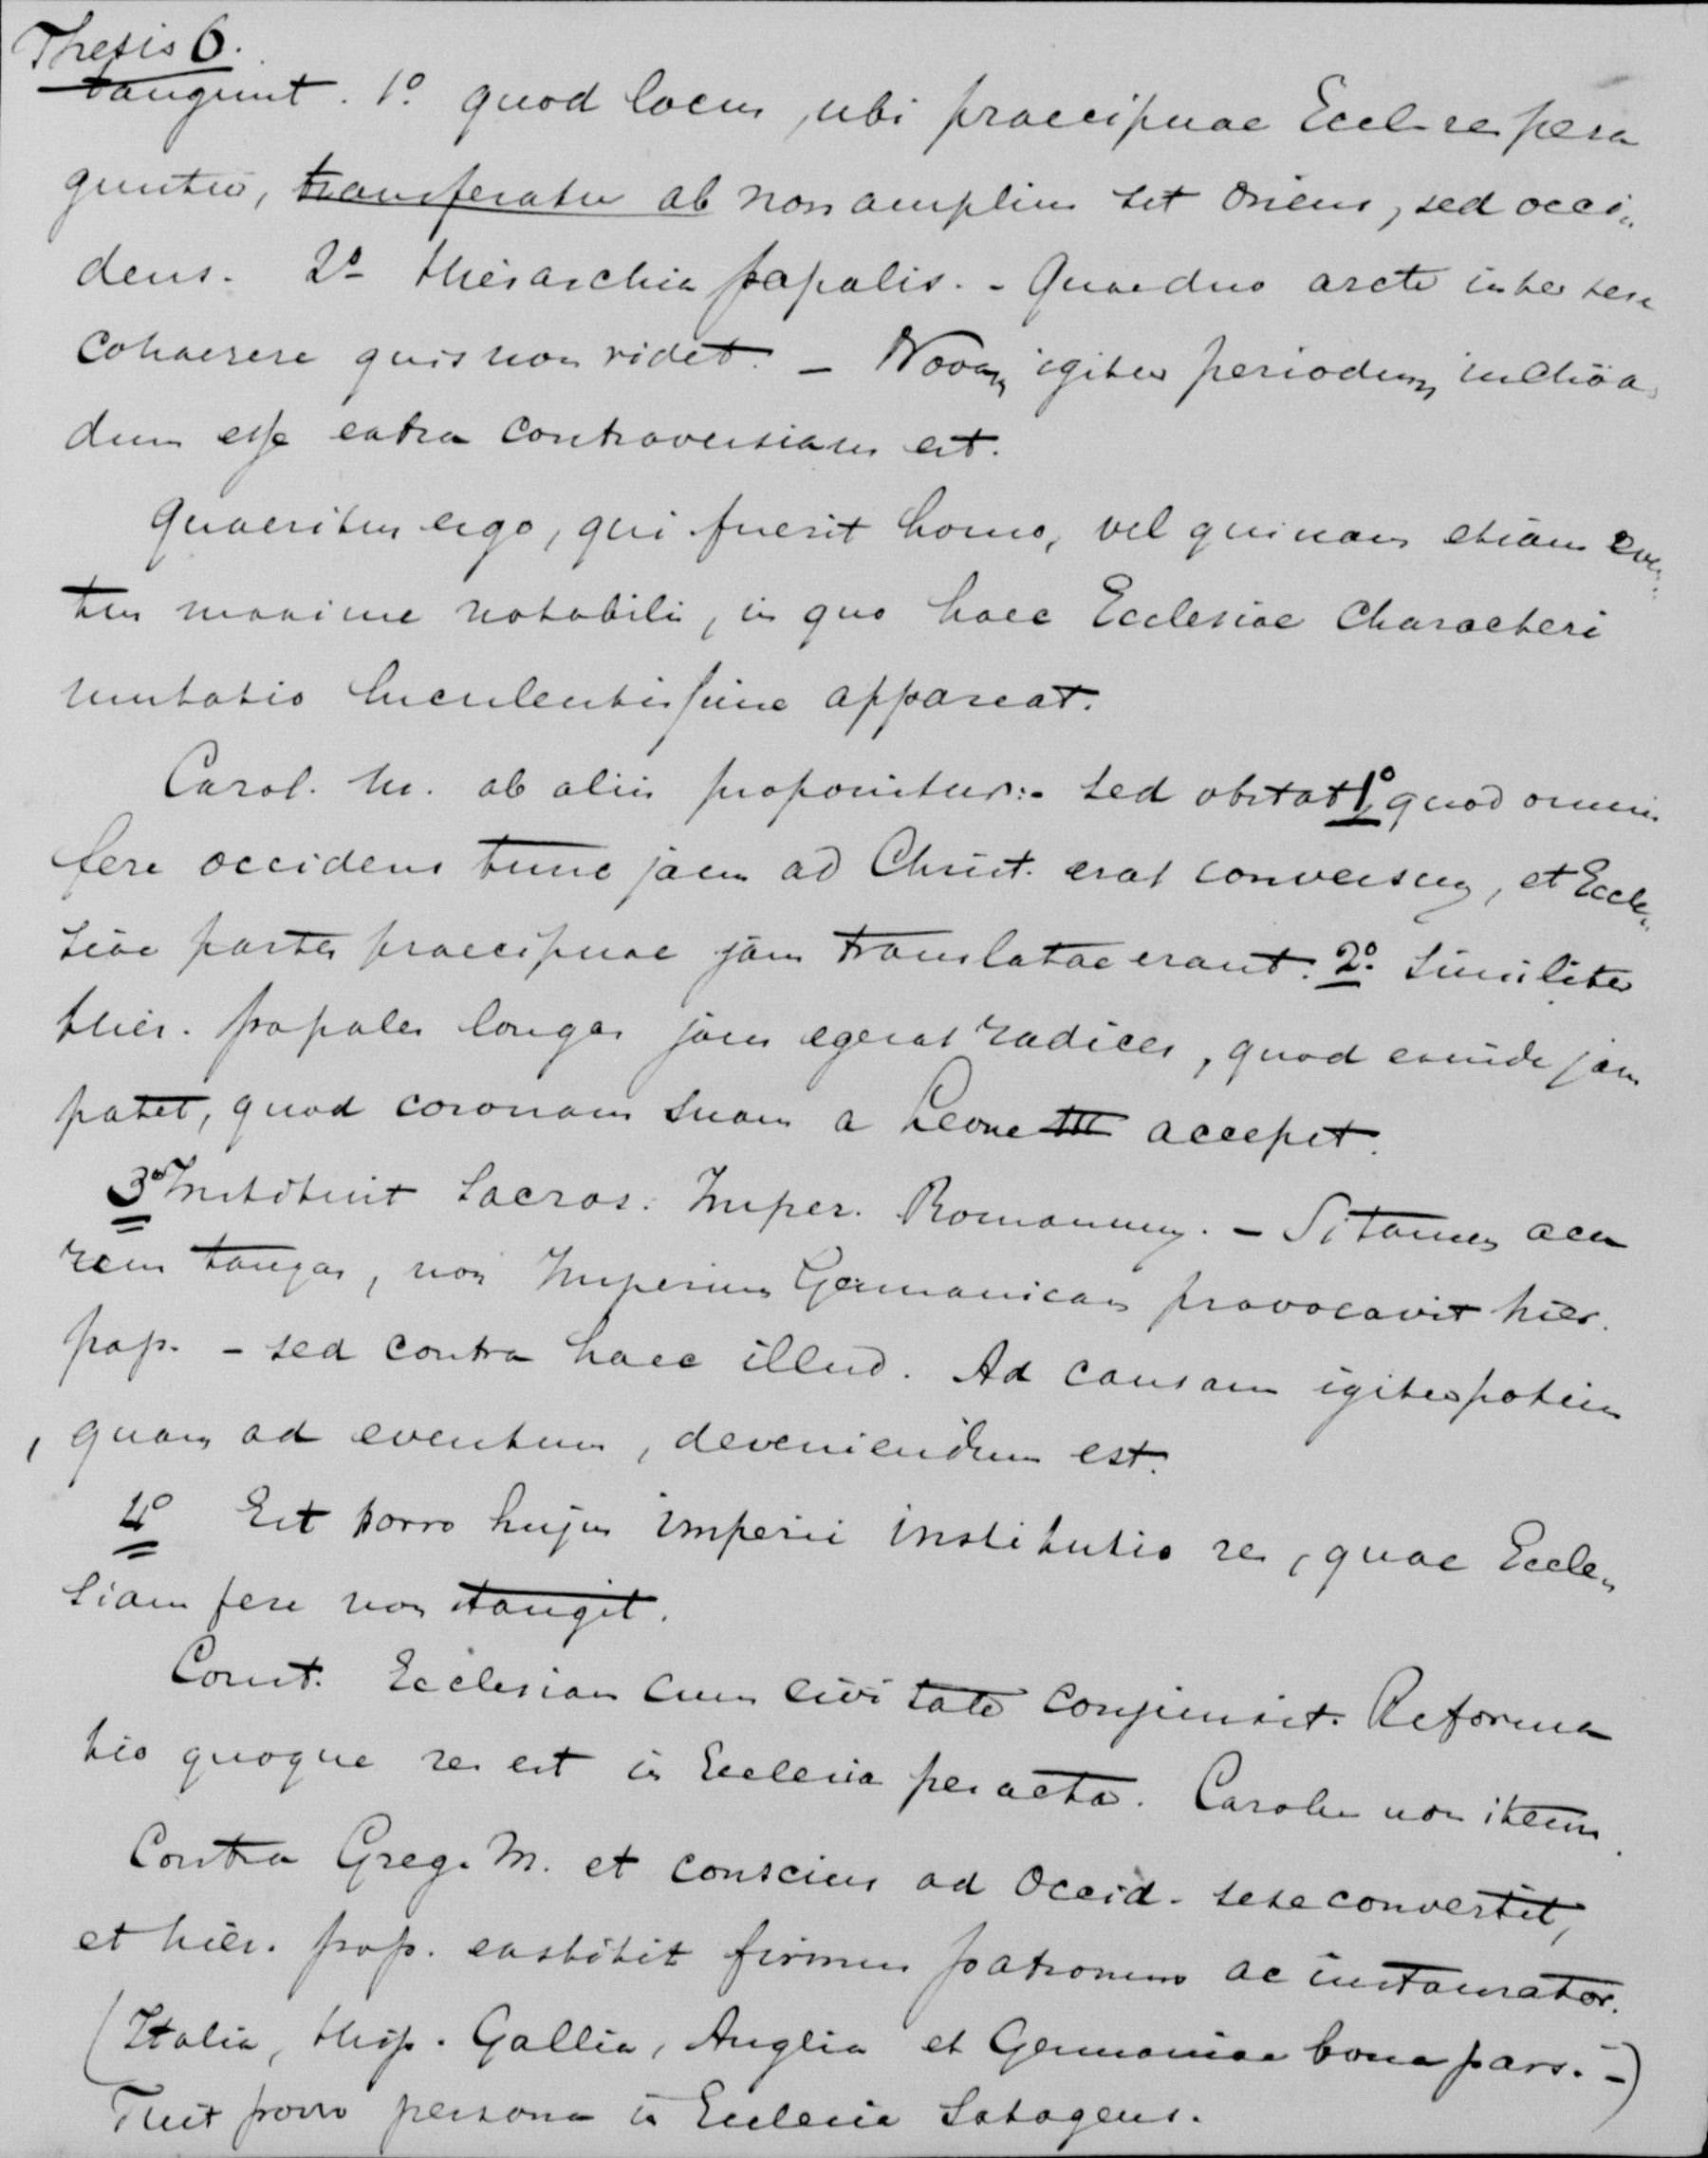 Thesis 6.
tangunt. 1º quod locus, ubi praecipuae Eccl. res pera
guntur, transferatur ab non amplius sit Oriens, sed occi„
dens. 2º Hierarchia papalis. - Quae duo arcte inter sese
cohaerere quis non videt. – Novam igitur periodum inchoa„
dum esse extra controversiam est.
Quaeritur ergo, qui fuerit homo, vel quinam etiam even„
tus maxime notabilis, in quo haec Ecclesiae Characteris
mutatio luculentissime appareat.
Carol. M. ab aliis proponitur: - sed obstat 1º quod omnis
fere occidens tunc jam ad Christ. erat conversus, et Eccle„
siae partes praecipuae jam translatae erant. 2º Similiter
Hier. papales longas jam egerat radices, quod exinde jam
patet, quod coronam suam a Leone III accepit.
3º Instituit Sacros. Imper. Romanum. – Si tamen acu
rem tangas, non Imperium Germanicam provocavit hier.
pap. – sed contra haec illud. Ad causam igitur potius
, quam ad eventum, deveniendum est.
4º Est porro hujus imperii institutio res, quae Eccle„
siam fere non tangit.
Const. Ecclesiam cum civitate conjunxit. Reforma
tio quoque res est in Ecclesia peracta. Carolus non item.
Contra Greg. M. et conscius ad Occid. sese convertit,
et hier. pap. exstitit firmus patronus ac instaurator.
(Italia, Hisp. Gallia, Anglia et Germaniae bona pars. –)
Fuit porro persona in Ecclesia Satagens.